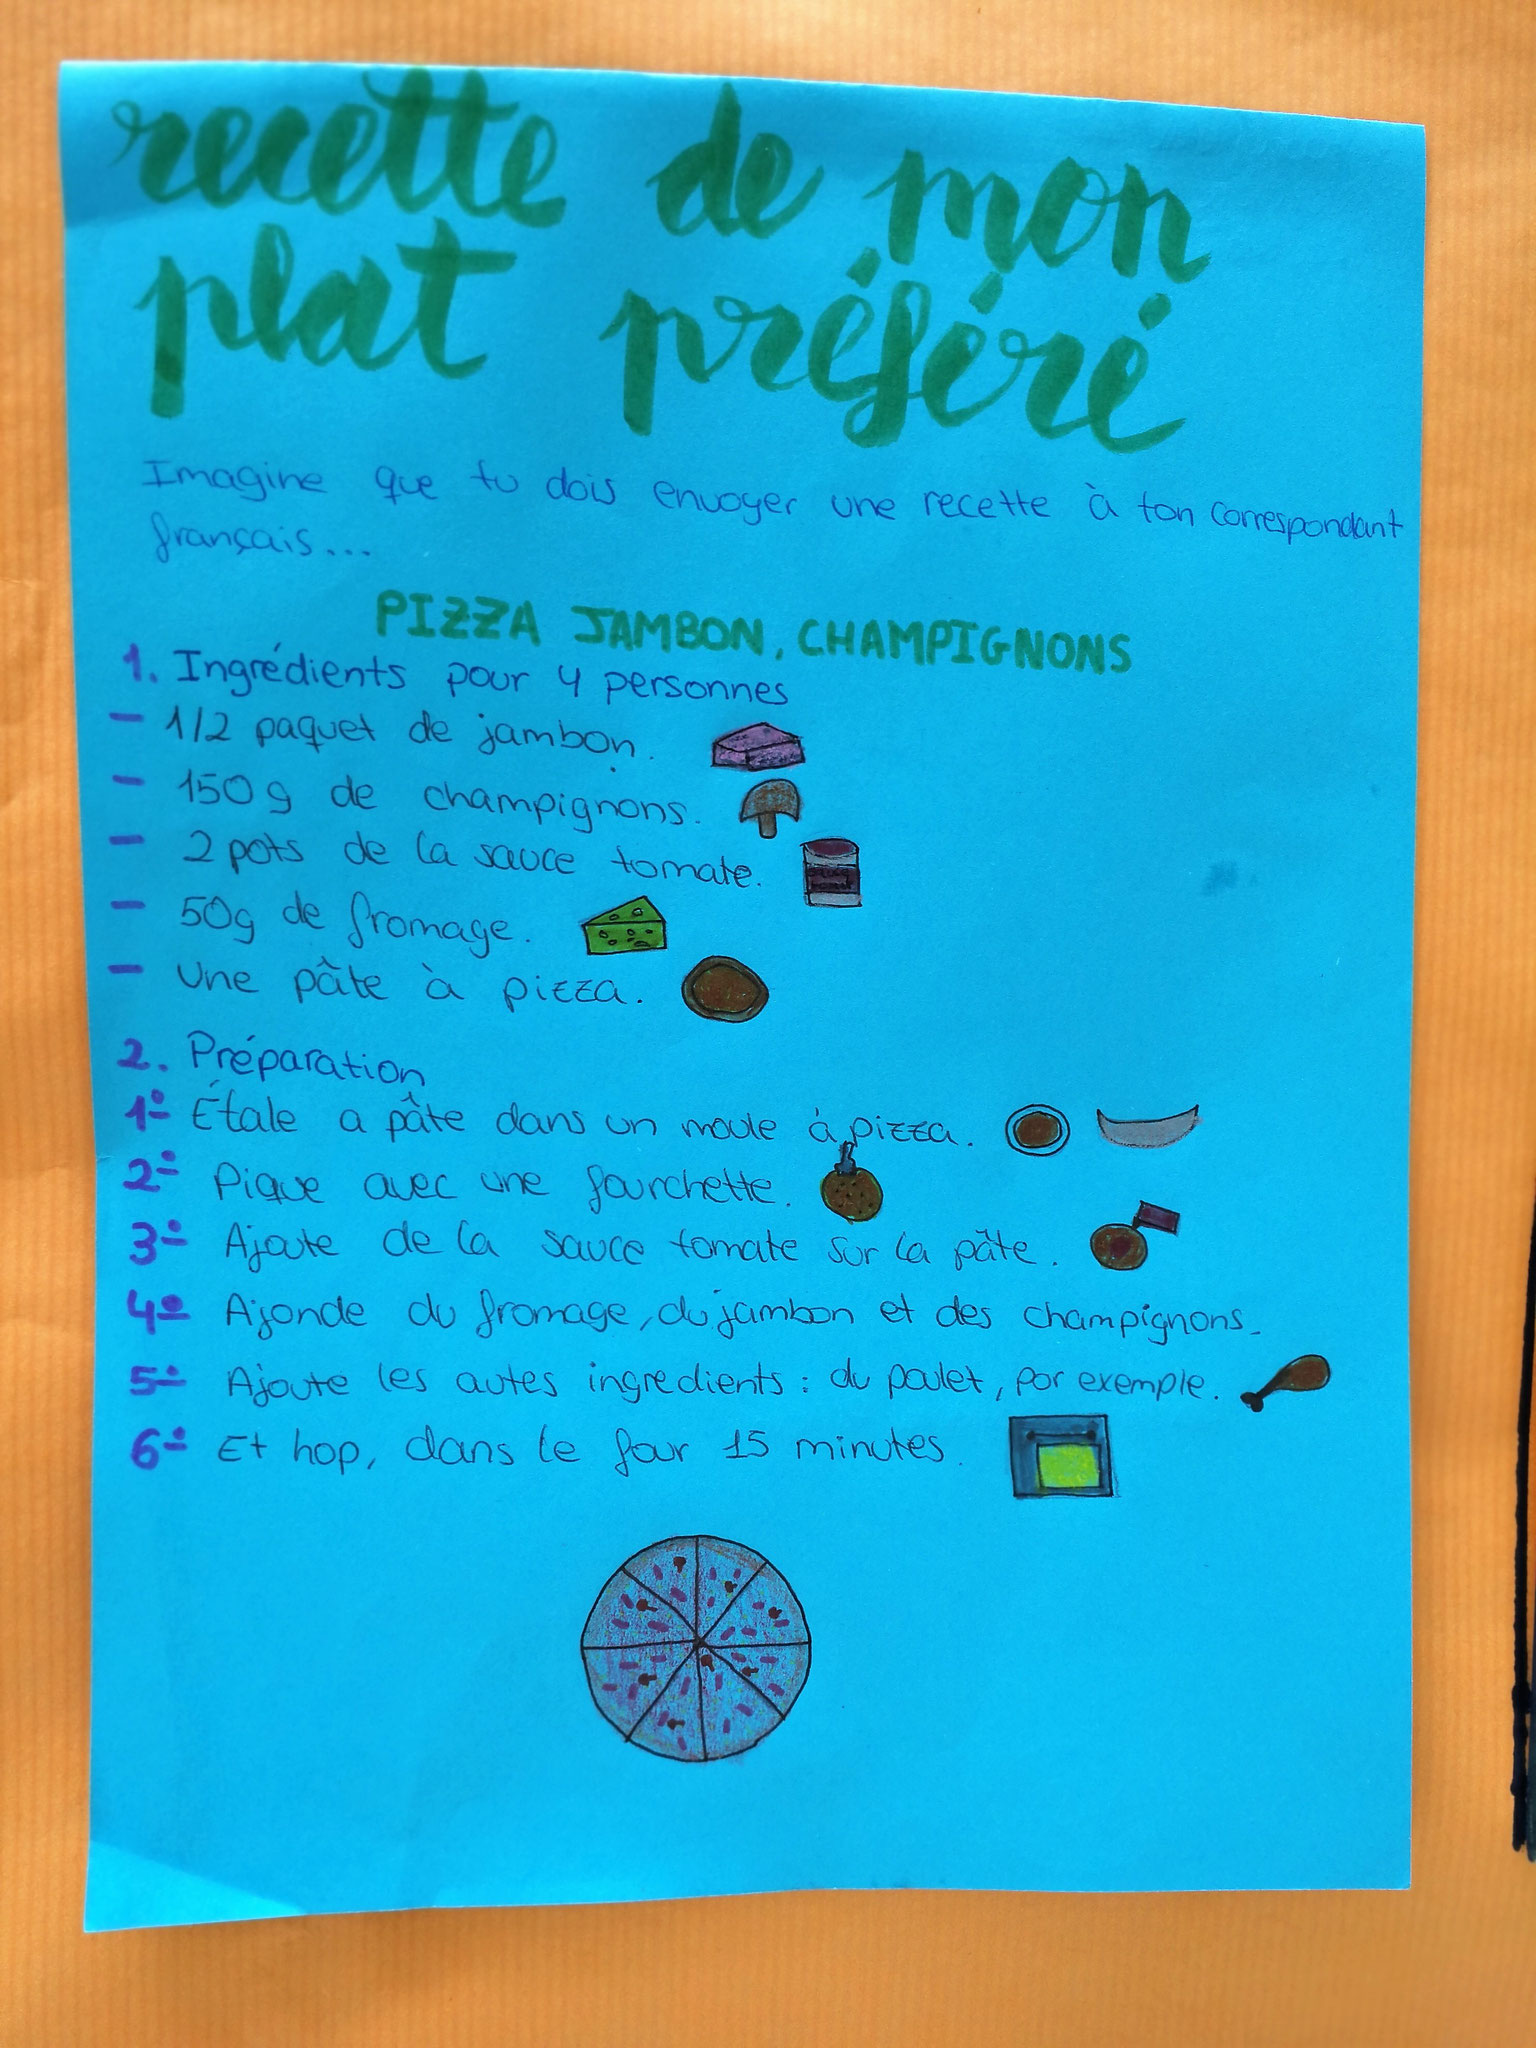 recette de mon
plat préféré
Imagine que tu dois envoyer une recette à ton correspondant
français...
PIZZA JAMBON, CHAMPIGNONS
1. Ingrédients pour 4 personnes
- 1/2 paquet de jambon.
- 150g de champignons.
- 2 pots de la sauce tomate.
- 50g de fromage.
- Une pâte à pizza.
2. Préparation
1º Étale a pâte dans un moule à pizza.
2º Pique avec une fourchette.
3º Ajoute de la sauce tomate sur la pâte.
4º Ajonde du fromage, du jambon et des champignons.
5º Ajoute les autes ingredients : du poulet, por exemple.
6º Et hop, dans le four 15 minutes.